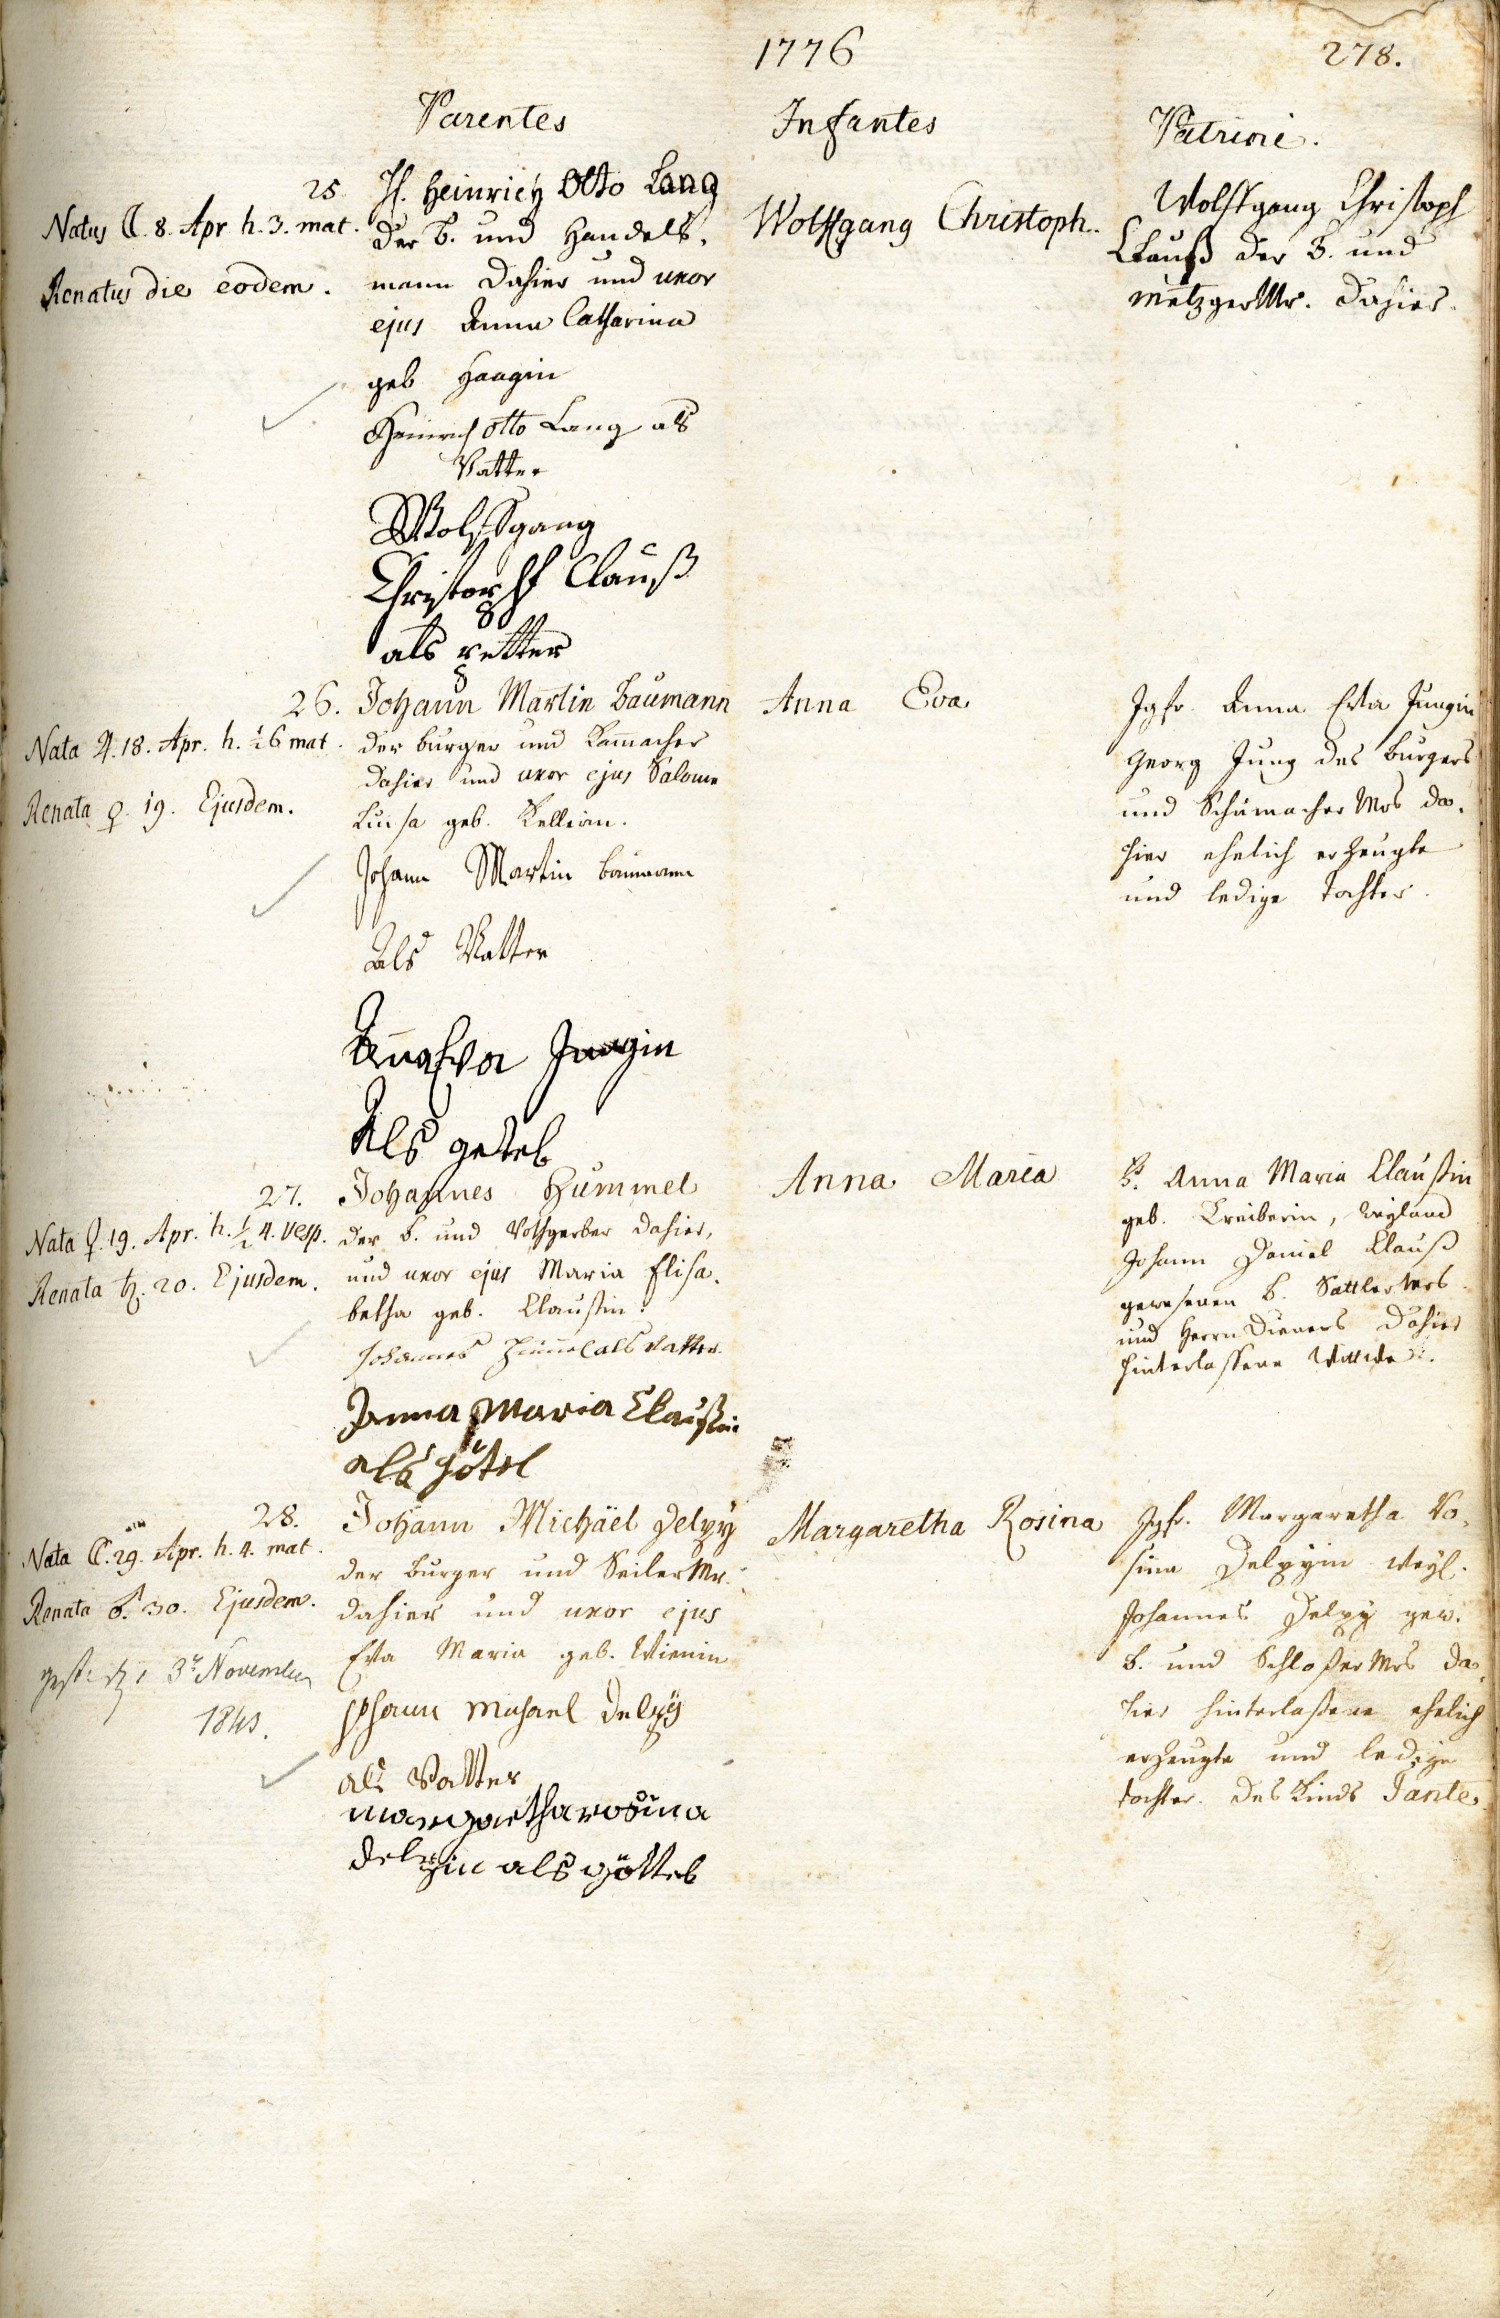 1776
278.
Parentes
Infantes
Patrini.
25
Natus ☾. 8. Apr h. 3. mat.
Renatus die eodem.
H. Heinrich Otto Lang
der b. und Handels-
mann dahier und uxor
ejus Anna Catharina
geb Haagin
Heinrich Otto Lang als
Vatter
Wolffgang
Christopff Clauß
als petter
Wolffgang Christoph.
Wolffgang Christoph
Clauß der b. und
metzger Mr. dahier.
26.
Nata ♃. 18. Apr. h. ½ 6 mat.
Renata ♀. 19. Ejusdem.
Johann Martin Baumann
der burger und Kam̅macher
dahier und uxor ejus Salome
Luisa geb.
Johann Martin Baumann
Als Vatter
Anna Eva Jungin
Als getel
Anna Eva
Jgfr. Anna Eva Jungin
Georg Jung des burgers
und Schumacher Mrs da-
hier ehelich erzeugte
und ledige tochter.
27.
Nata ♀. 19. Apr. h. ½ 4. vesp.
Renata ♄. 20. Ejusdem.
Johannes Hummel
der b. und Rothgerber dahier,
und uxor ejus Maria Elisa-
betha geb. Claußin.
Johannes Hum̅el als Vatter.
Anna Maria Claußin
als götel
Anna Maria
Fr. Anna Maria Claußin
geb. Treiberin, weyland
Johann Daniel Clauß
gewesenen b. Sattler Mrs
und Herrn Dieners dahier
hinterlassene Wittwe.
28.
Nata ☾. 29. Apr. h. 4. mat.
Renata ♂. 30. Ejusdem.
3ᵗ November
Johann Michäel Delpÿ
der burger und Seiler Mr.
dahier und uxor ejus
Eva Maria geb. Wienin
Johann Michael Delpÿ
als Vatter
margaretha rosina
delpÿin als götteb
Margaretha Rosina
Jgfr. Margaretha Ro-
sina Delpÿin weyl.
Johannes Delpÿ gew.
b. und Schloßer Mrs da-
hier hinterlaßene ehelich
erzeugte und ledige
tochter. des Kinds Tante.